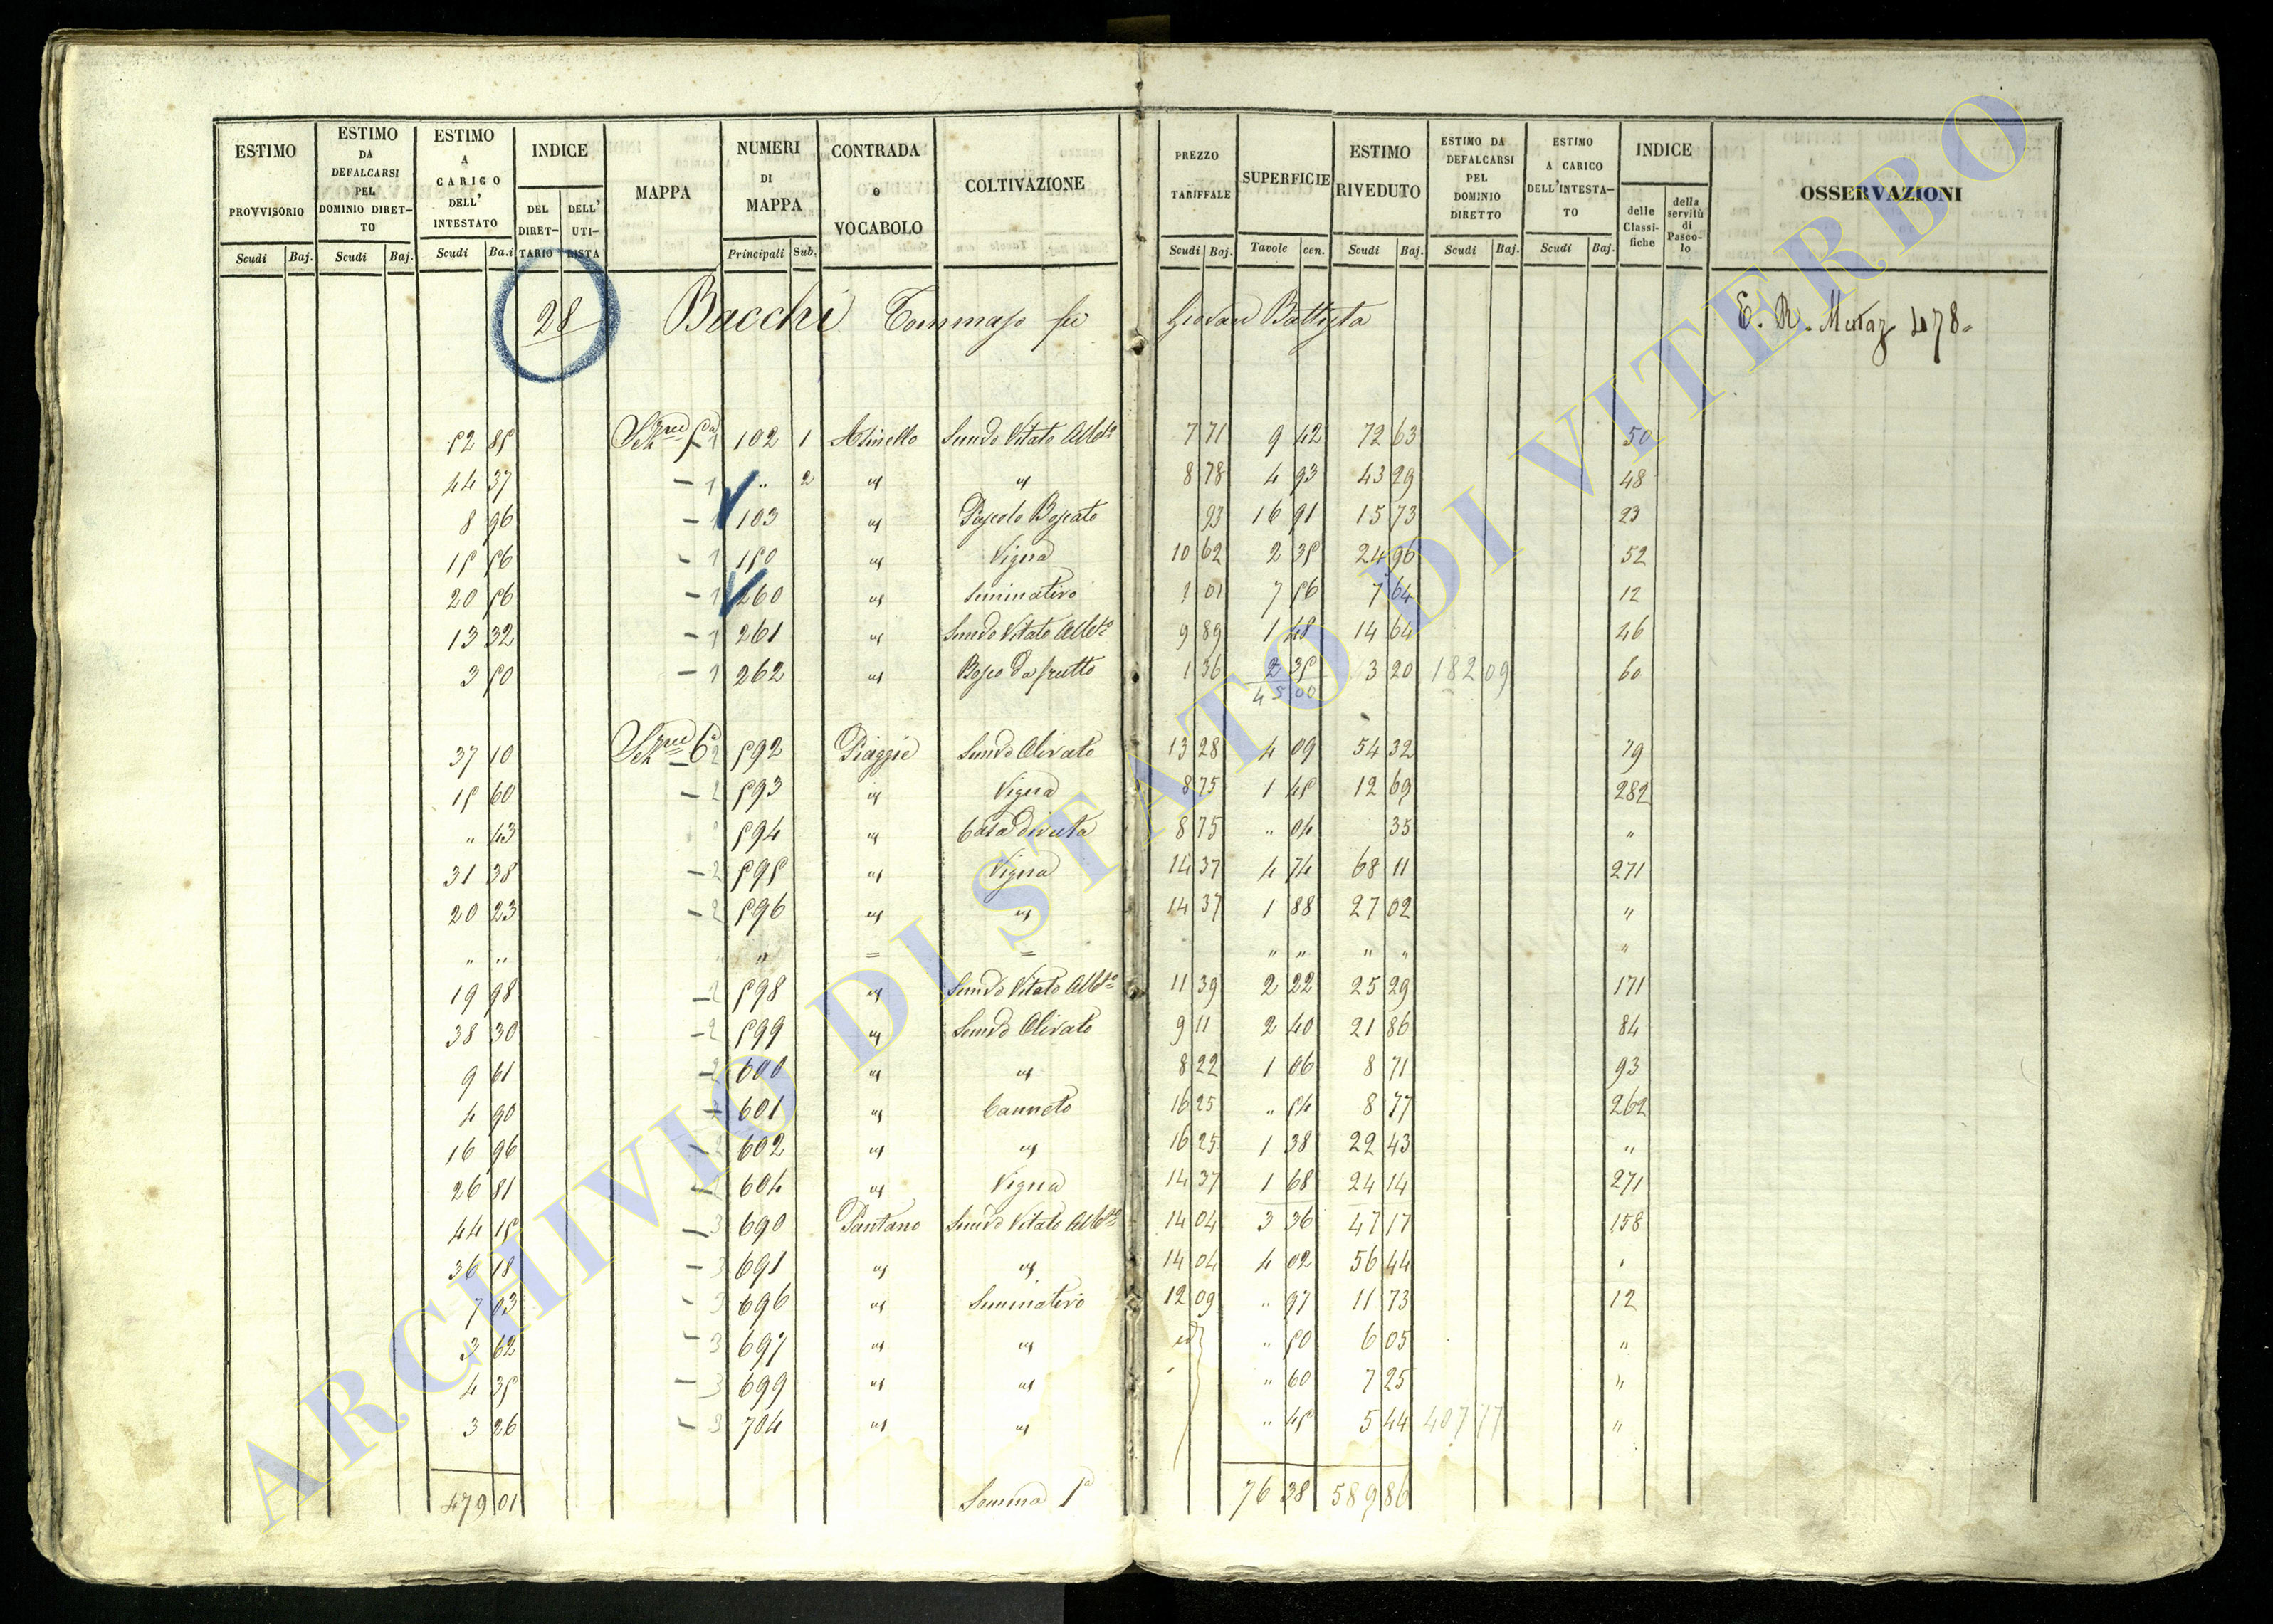 ESTIMO PROVVISORIO
ESTIMO DA DEFALCARSI PEL DOMINIO DIRET-TO
ESTIMO A CARICO DELL' INTESTATO
INDICE
DEL DIRET-TARIO
DELL' UTI-LISTA
MAPPA
NUMERI DI MAPPA
CONTRADA o VOCABOLO
COLTIVAZIONE
PREZZO TARIFFALE
SUPERFICIE
ESTIMO RIVEDUTO
ESTIMO DA DEFALCARSI PEL DOMINIO DIRETTO
ESTIMO A CARICO DELL'INTESTA-TO
INDICE
delle Classi-fiche
della servitù di Pasco-lo
OSSERVAZIONI
Scudi Baj. Scudi Baj. Scudi Ba.i Principali Sub. Scudi Baj. Tavole cen. Scudi Baj. Scudi Baj. Scudi Baj.
28 Bacchi Tommaso fu Giovan Battista E. R. Mutaz 478
52 85 Sezne 5a 1 102 1 Asinello Semvo Vitato Albto 7 71 9 42 72 63 50
44 37 – 1 " 2 " " 8 78 4 93 43 29 48
8 96 – 1 103 " Pascolo Boscato 93 16 91 15 73 23
15 56 – 1 150 " Vigna 10 62 2 35 24 96 52
20 56 – 1 260 " Seminativo 1 01 7 56 7 64 12
13 32 – 1 261 " Semvo Vitato Albto 9 89 1 48 14 64 46
3 50 – 1 262 " Bosco da frutto 1 36 2 35 3 20 182 09 60
45 00
37 10 Sezne 6a 2 592 Piaggie Semvo Olivato 13 28 4 09 54 32 79
15 60 – 2 593 " Vigna 8 75 1 45 12 69 282
" 43 594 " Casa diruta 8 75 " 04 35 "
31 38 – 2 595 " Vigna 14 37 4 74 68 11 271
20 23 – 2 596 " " 14 37 1 88 27 02 "
" " " = = " " " " "
19 98 – 2 598 " Semvo Vitato Albto 11 39 2 22 25 29 171
38 30 – 2 599 " Semvo Olivato 9 11 2 40 21 86 84
9 61 – 2 600 " " 8 22 1 06 8 71 93
4 90 – 2 601 " Canneto 16 25 " 54 8 77 262
16 96 – 2 602 " " 16 25 1 38 22 43 "
26 81 – 2 604 " Vigna 14 37 1 68 24 14 271
44 15 – 3 690 Pantano Semvo Vitato Albto 14 04 3 36 47 17 158
36 18 – 3 691 " " 14 04 4 02 56 44 "
7 03 – 3 696 " Seminativo 12 09 " 97 11 73 12
3 62 – 3 697 " " id " 50 6 05 "
4 35 – 3 699 " " " 60 7 25 "
3 26 – 3 704 " " " 45 5 44 407 77 "
479 01 Somma 1a 76 38 589 86
ARCHIVIO DI STATO DI VITERBO